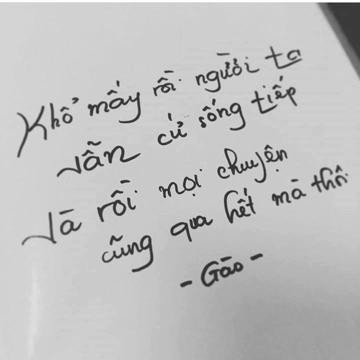 Khổ mấy rồi người ta
vẫn cứ sống tiếp
Và rồi mọi chuyện
cũng qua hết mà thôi
- Gào -